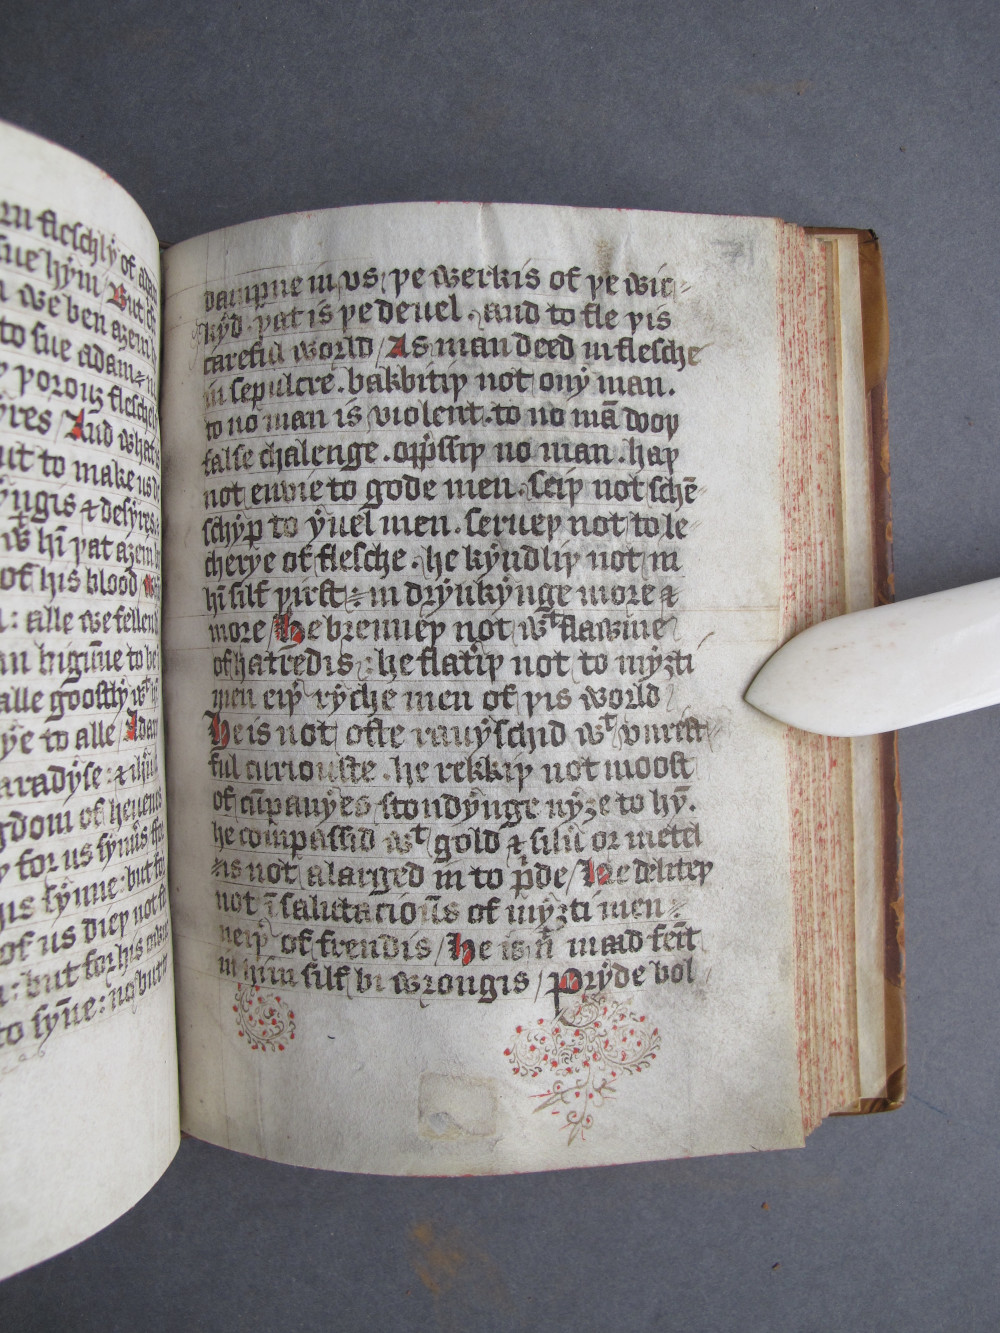 m fleschly of adam
sue hym / But cri
we ben aȝem
to sue adam ⁊ n
þorouȝ fleschel
yres / And what
ut to make us de
yngis ⁊ desyres
hī þat aȝem
of his blood
: alle we fellen
an higūne to be
alle goostly wt hȳ
ye to alle / Adam
aradyse : ⁊ ihū
gdom of heuenes
for us synn̄s
is synne : but for
of us dieþ not
: but for his owne
to syn̄e : not but
dampne in vs / þe werkis of þe wic
kyd . þat is þe deuel . And to fle þis
careful world / As man deed in flesche
in sepulcre . bakbitiþ not ony man .
to no man is violent . to no mā dooþ
false chalenge . opp̄ssiþ no man . haþ
not enuie to gode men . seiþ not schē
schyp to yuel men . serueþ not to le
cherye of flesche . he kyndliþ not in
hī silf þirst : in drynkynge more ⁊
more / He brenneþ not wt flawme
of hatredis : he flat'iþ not to myȝti
men eiþ' ryche men of þis world
He is not / ofte rauyschid wt vnrest
ful curiouste . he rekkiþ not moost
of cūpanyes stondynge nyȝe to hȳ .
he compassid wt gold ⁊ silu' or metel
is not alarged in to p'de / He deliteþ
not ī salutacioūs of myȝti men :
neiþ' of frendis / He is n̄ mad feīt
in him silf bi wrongis / Pryde bol